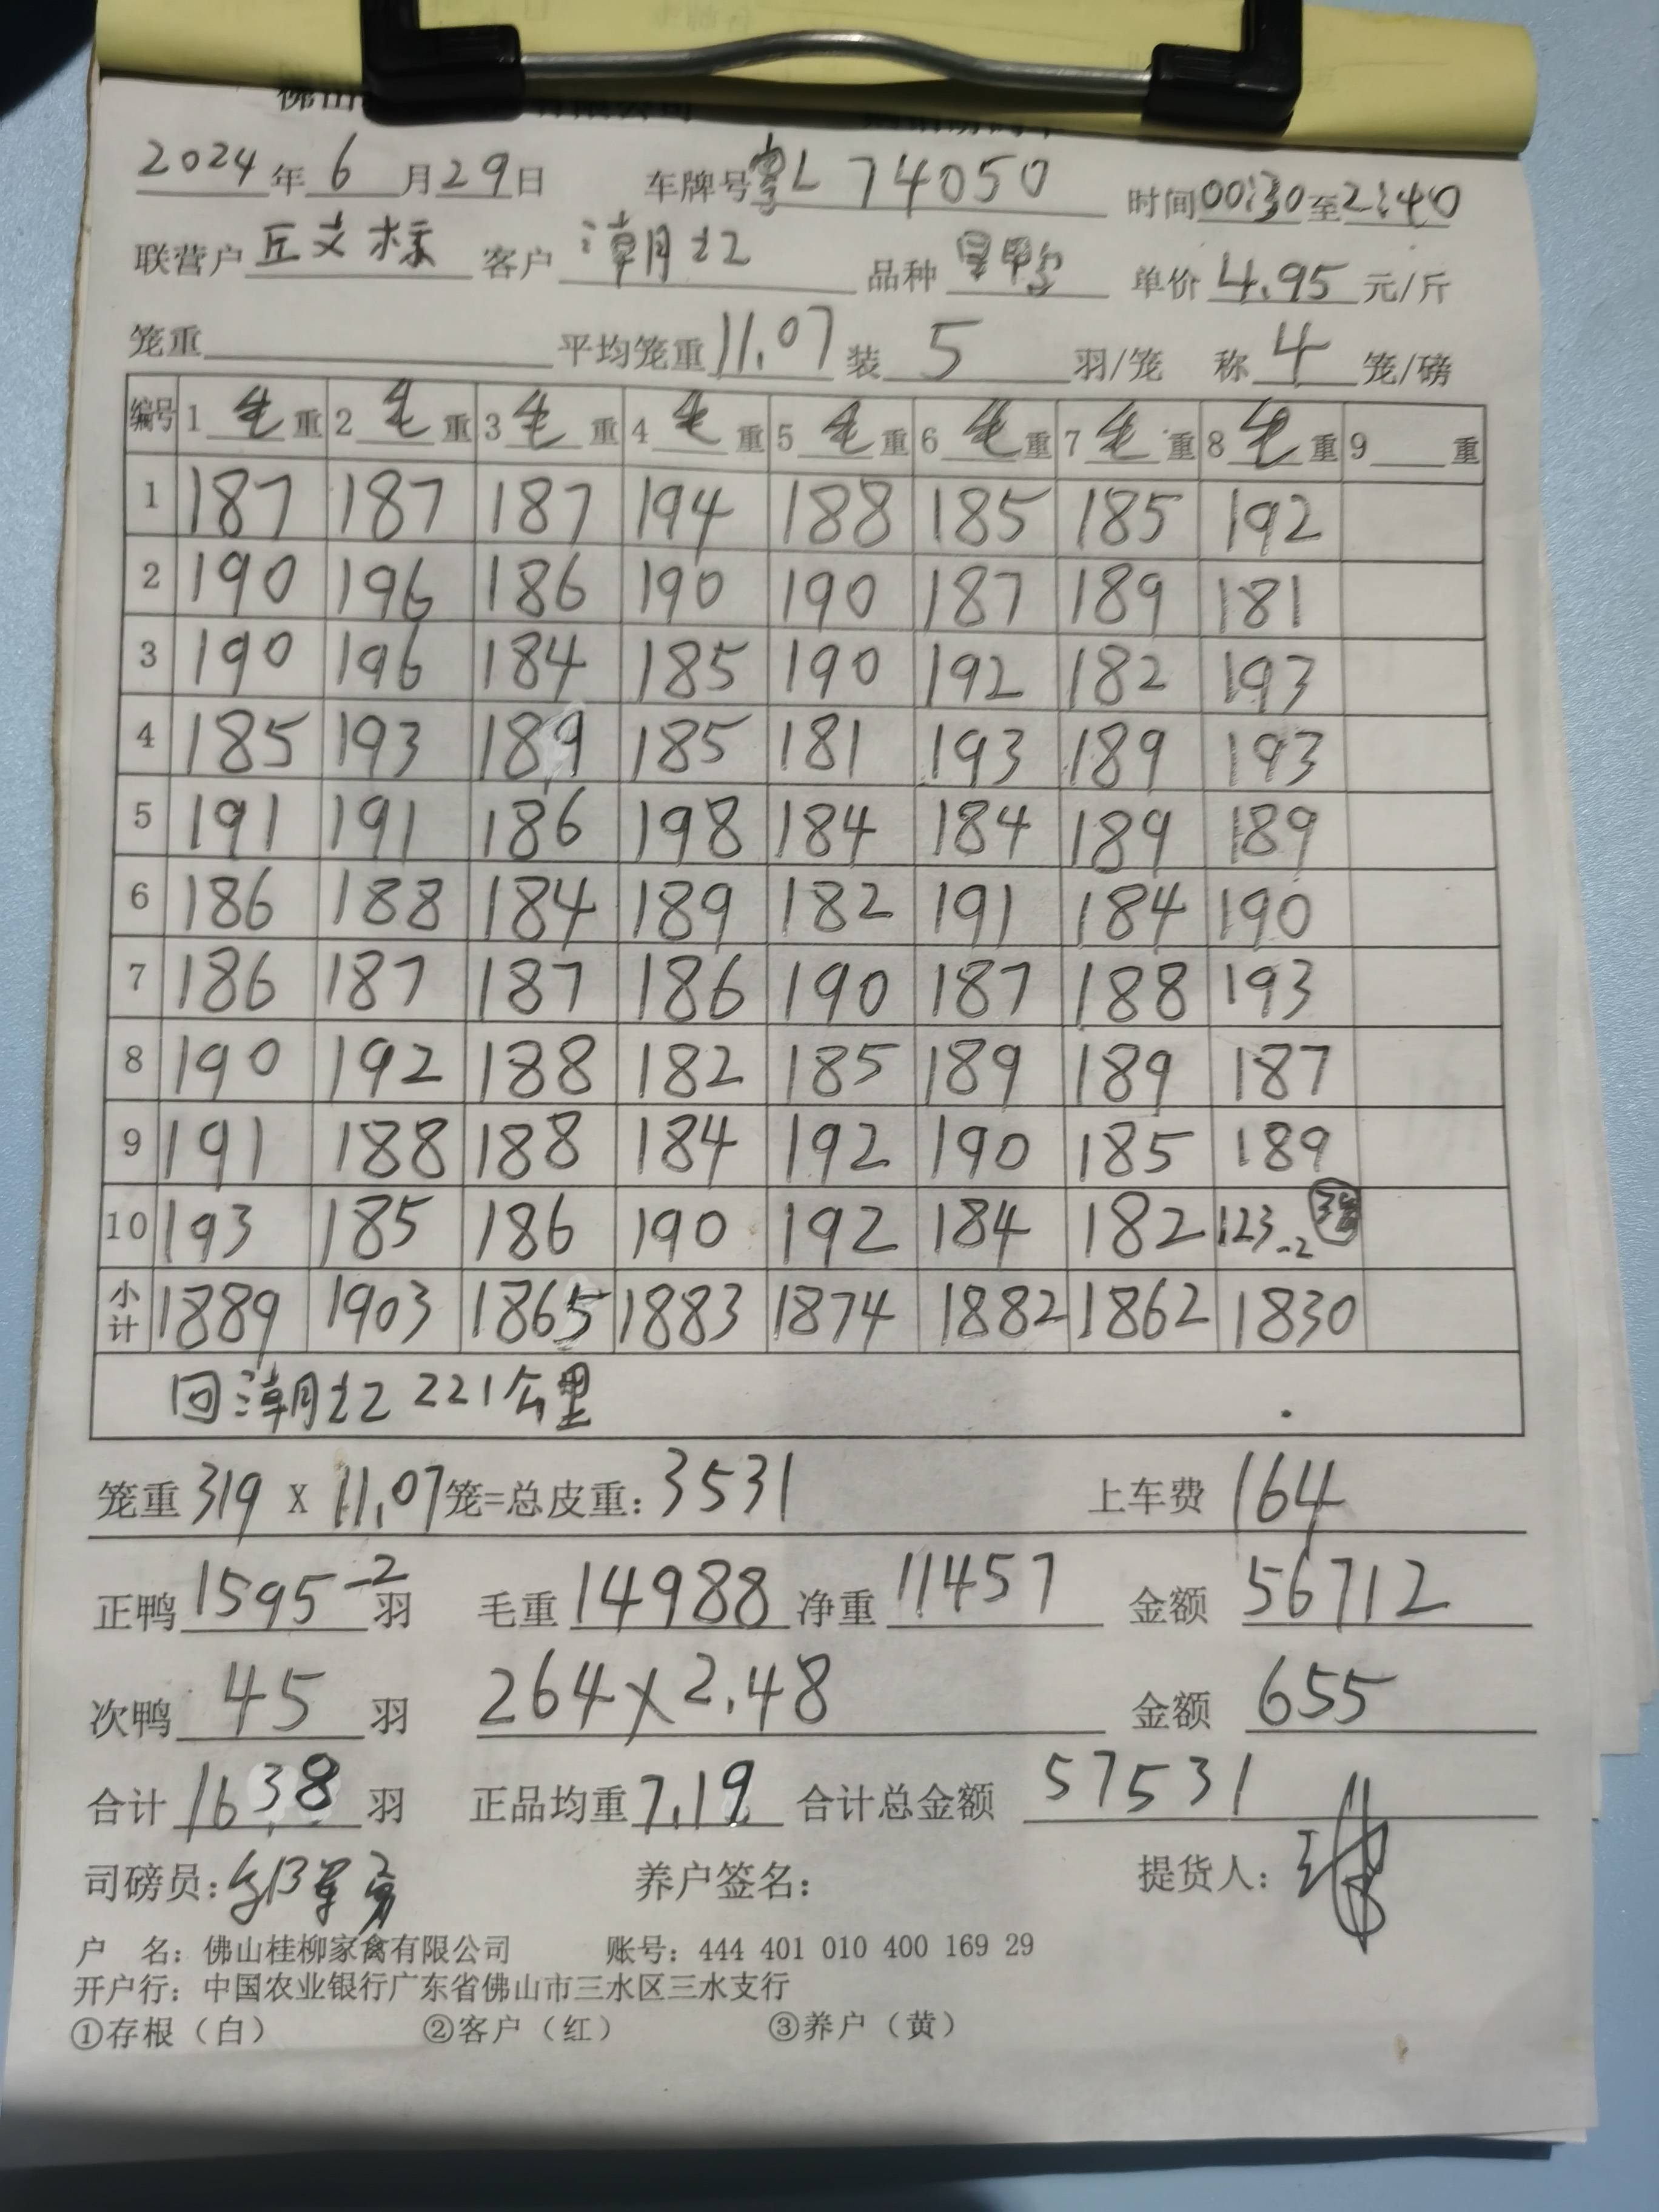 2024年6月29日 车牌号粤L 74050 时间00:30至2:40
联营户丘文标 客户潮红 品种 单价4.95元/斤
笼重 平均笼重11.07装5羽/笼 称4笼/磅
编号 1毛重 2毛重 3毛重 4毛重 5毛重 6毛重 7毛重 8毛重 9重
1 187 187 187 194 188 185 185 192
2 190 196 186 190 190 187 189 181
3 190 196 184 185 190 192 182 193
4 185 193 189 185 181 193 189 193
5 191 191 186 198 184 184 189 189
6 186 188 184 189 182 191 184 190
7 186 187 187 186 190 187 188 193
8 190 192 188 182 185 189 189 187
9 191 188 188 184 192 190 185 189
10 193 185 186 190 192 184 182 123 -2
小计 1889 1903 1865 1883 1874 1882 1862 1830
回潮红221公里
笼重319 X 11.07笼=总皮重:3531 上车费164
正鸭1595-2羽 毛重14988净重11457 金额56712
次鸭45羽 264×2.48 金额655
合计1638羽 正品均重7.19 合计总金额57531
司磅员: 养户签名: 提货人:
户 名:佛山桂柳家禽有限公司 账号:444 401 010 400 169 29
开户行:中国农业银行广东省佛山市三水区三水支行
①存根（白） ②客户（红） ③养户（黄）